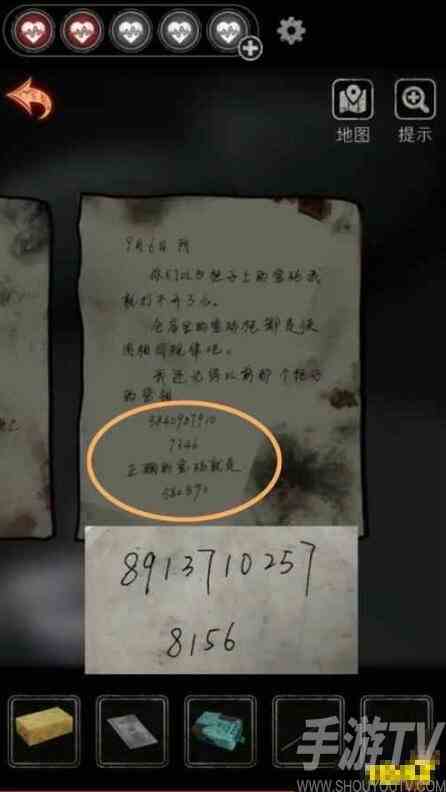 地图
提示
9月6日 阴
你们以为柜子上的密码我
就打不开了么。
仓库里的密码纸都是按
同相同规律吧。
我还记得以前那个柜子
的密码
5840907910
7346
正确的密码就是
580590
8913710257
8156
手游TV
WWW.SHOUYOUTV.COM